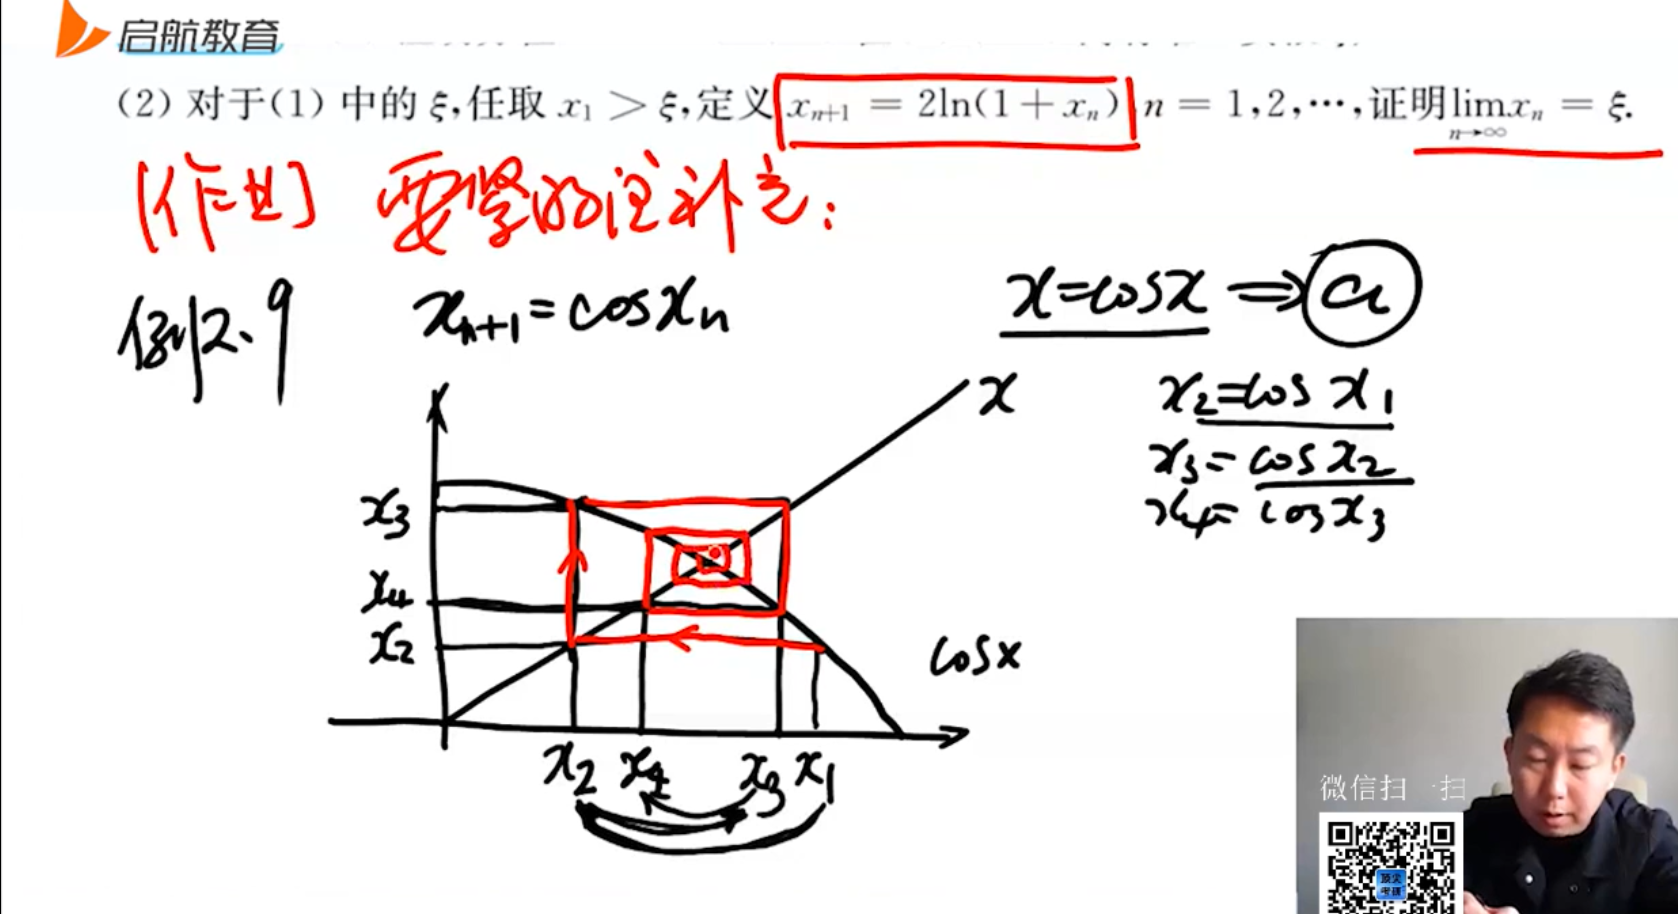 启航教育
(2) 对于(1) 中的 ξ,任取 x₁ > ξ,定义 xₙ₊₁ = 2ln(1 + xₙ) n = 1,2,⋯,证明 lim xₙ = ξ.
n→∞
[作业] 要紧的注补充:
例2.9 xₙ₊₁=cosxₙ x=cosx ⇒ a
x
x₂=cos x₁
x₃=cos x₂
x₄=cos x₃
x₃
x₄
x₂
cosx
x₂ x₄ x₃ x₁
微信扫一扫
顶尖
考研